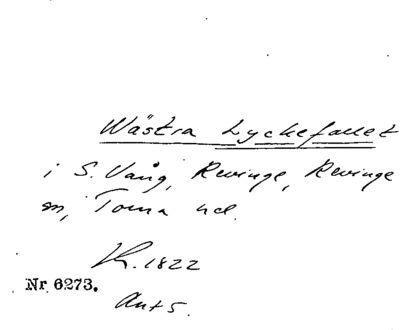 Wästra Lyckefallet
i S. Vång, Revinge, Revinge
sn, Torna hd.
Lk. 1822
Nr 6273.
Ant 5.